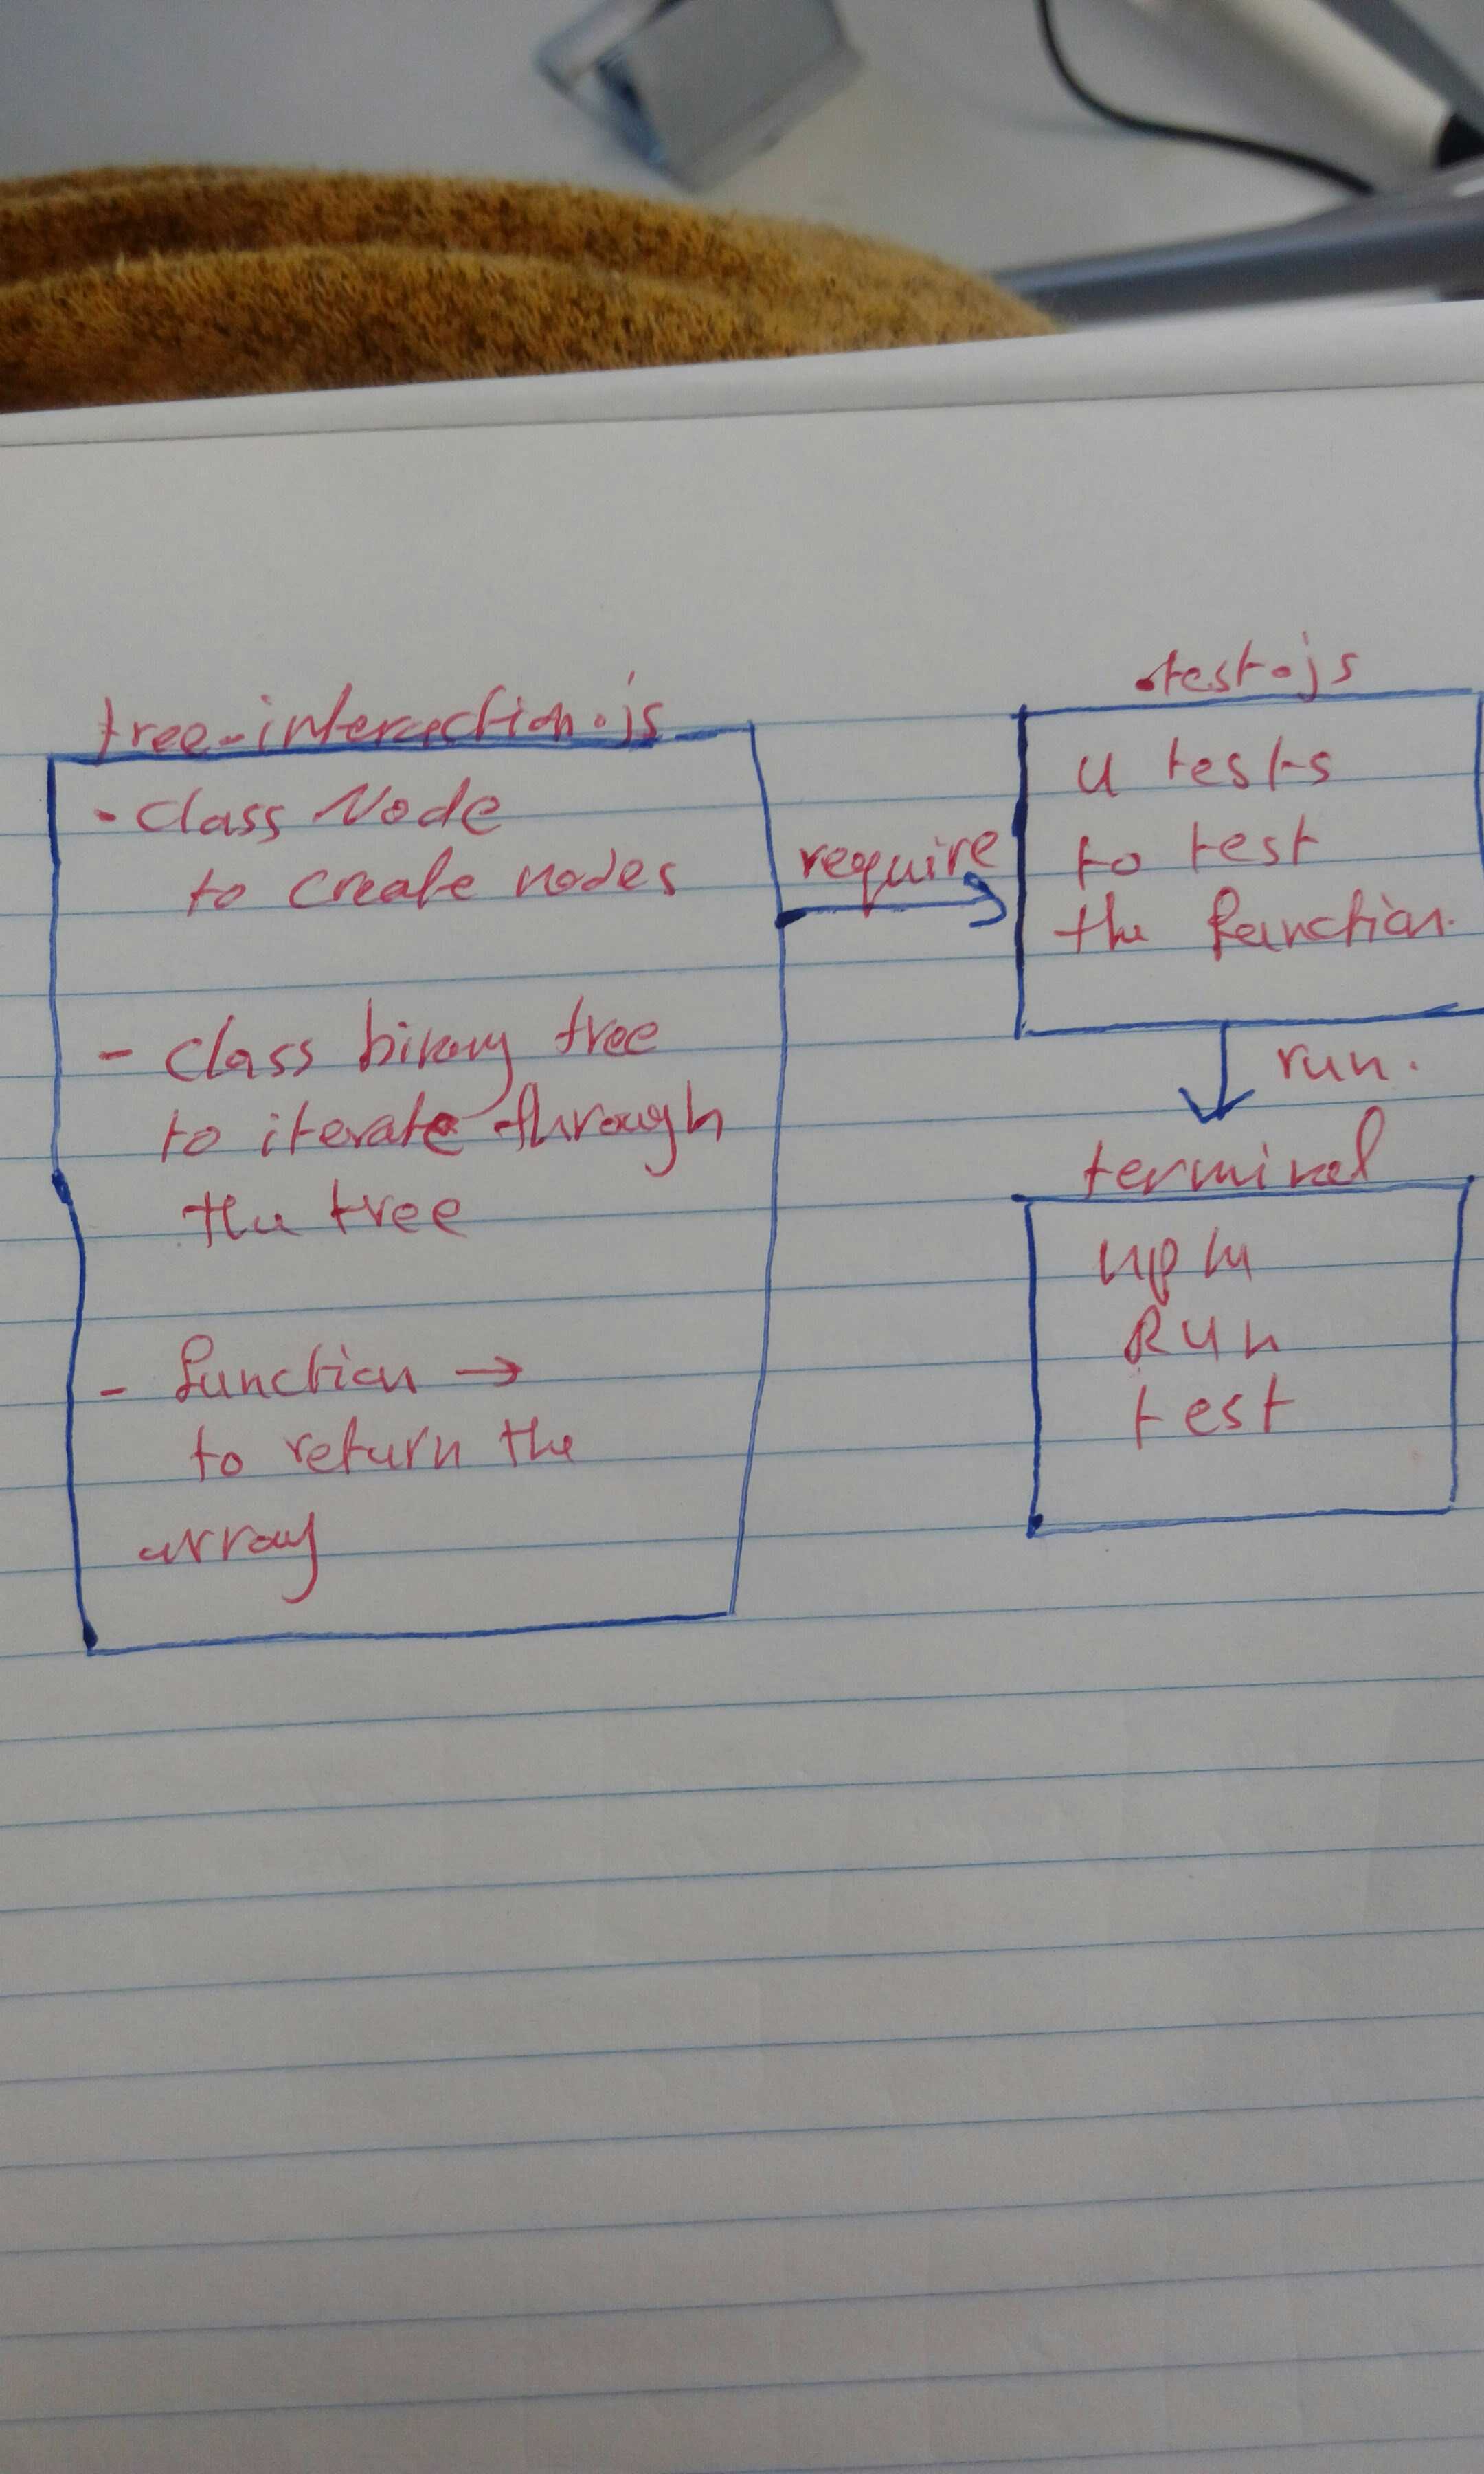 tree-intersection.js
- Class Node
to create nodes
- Class binary tree
to iterate through
the tree
- function →
to return the
array
require
.test.js
4 tests
to test
the function.
run.
terminal
npm
Run
test